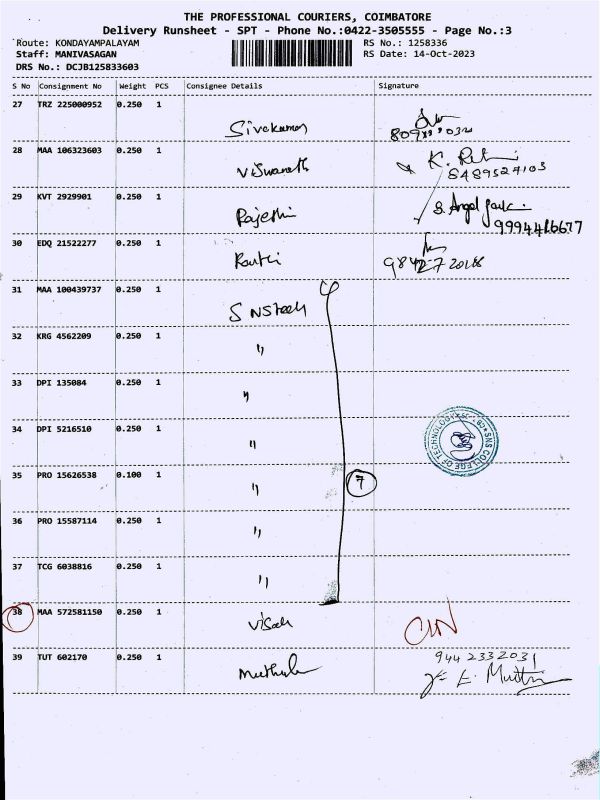 THE PROFESSIONAL COURIERS, COIMBATORE
Delivery Runsheet - SPT - Phone No.:0422-3505555 - Page No.:3
Route: KONDAYAMPALAYAM RS No.: 1258336
Staff: MANIVASAGAN RS Date: 14-Oct-2023
DRS No.: DCJB125833603
S No Consignment No Weight PCS Consignee Details Signature
27 TRZ 225000952 0.250 1 Sivakumar
28 MAA 106323603 0.250 1 Viswanath K. 8489527103
29 KVT 2929901 0.250 1 S. Angel
9994416677
30 EDQ 21522277 0.250 1
31 MAA 100439737 0.250 1 SNS tech
32 KRG 4562209 0.250 1 "
33 DPI 135084 0.250 1 "
34 DPI 5216510 0.250 1 " SNS COLLEGE OF TECHNOLOGY
35 PRO 15626538 0.100 1 " 7
36 PRO 15587114 0.250 1 "
37 TCG 6038816 0.250 1 "
38 MAA 572581150 0.250 1
39 TUT 602170 0.250 1 9442332031